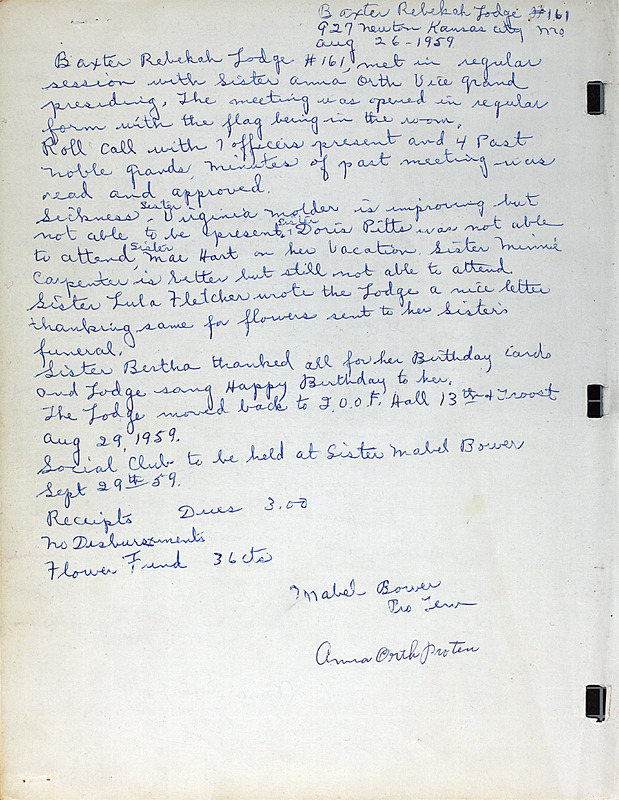 Baxter Rebekah Lodge #161
927 Newton Kansas City Mo.
Aug 26-1959
Baxter Rebekah Lodge #161, met in regular
session with Sister Anna Orth Vice Grand
presiding. The meeting was opened in regular
form with the flag being in the room.
Roll call with 7 officers present and 4 Past
Noble Grands, Minutes of past meeting was
read and approved.
Sickness, Sister Virginia Molder is improving but
not able to be present, Sister Doris Pitts was not able
to attend, Sister Mae Hart on her Vacation. Sister Minnie
Carpenter is better but still not able to attend.
Sister Lula Fletcher wrote the Lodge a nice letter
thanking same for flowers sent to her Sister's
funeral.
Sister Bertha thanked all for her Birthday Cards
and Lodge sang Happy Birthday to her.
The Lodge moved back to I.O.O.F. Hall 13th & Troost
Aug 29, 1959.
Social Club to be held at Sister Mabel Bower
Sept 29th 59.
Receipts Dues 3.00
No Disbursments
Flower Fund 36 cts
Mabel Bower
Pro Tem
Anna Orth Protem